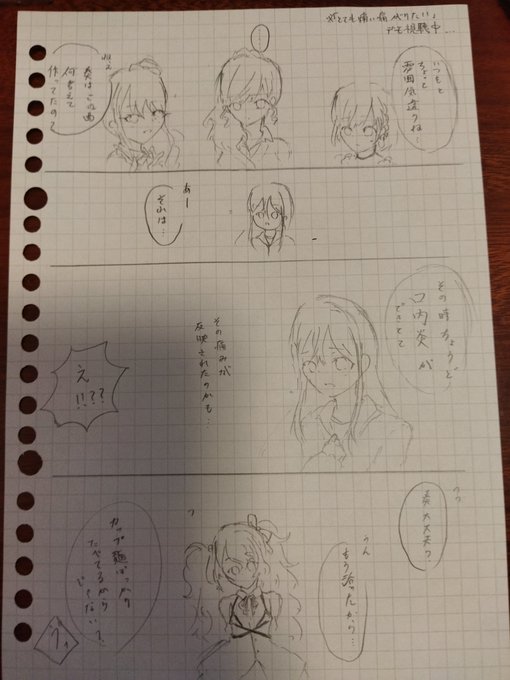 「とても痛い痛がりたい」
デモ視聴中…
いつもと
ちょっと
雰囲気違うね…
……
奏はこの曲
何考えて
作ってたの?
あー
それは…
その時ちょうど
口内炎が
できてて
その痛みが
反映されたのかも…
え
!!??
奏大丈夫?
うん
もう治ったから…
カップ麺ばっかり
たべてるから
じゃない?